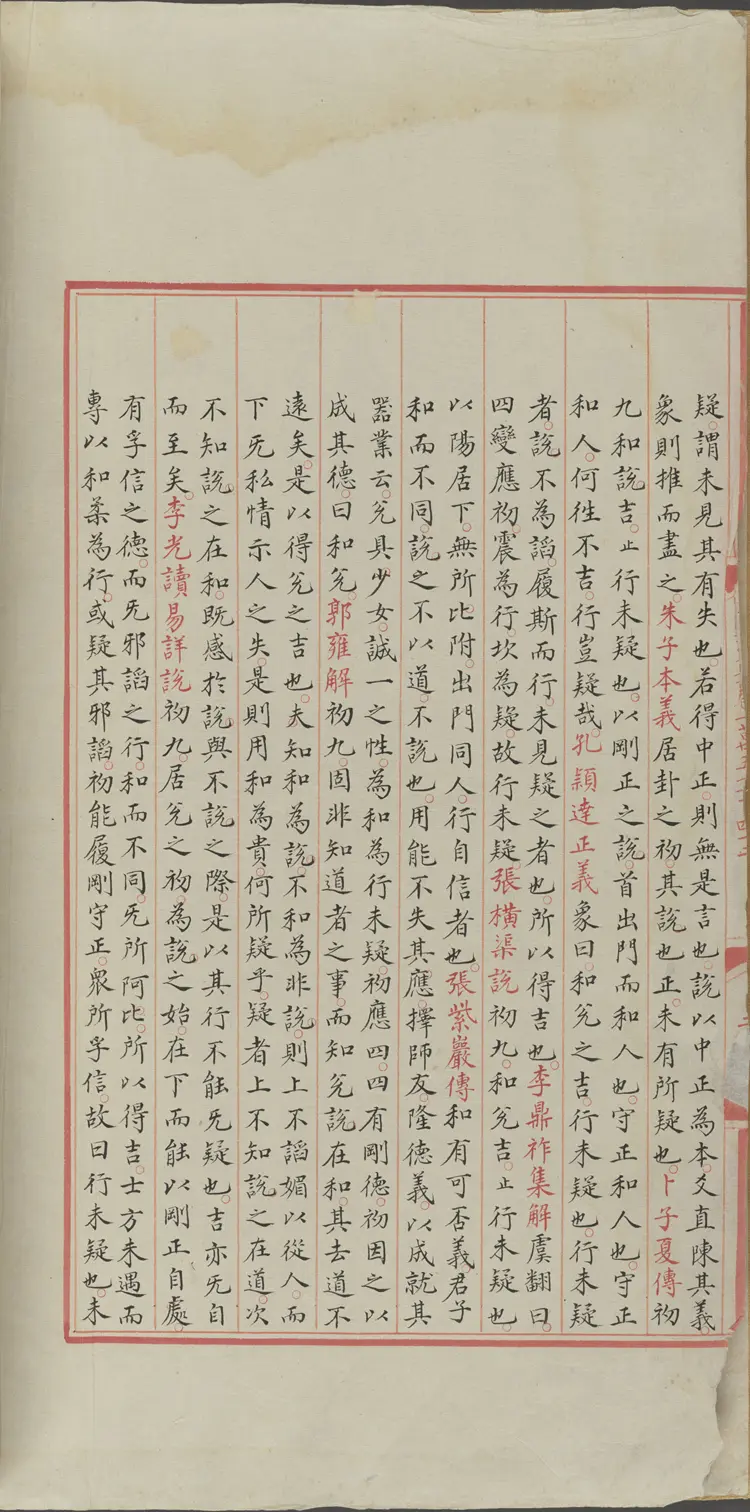 疑。謂未見其有失也。若得中正。則無是言也。說以中正為本。爻直陳其義
象則推而盡之。朱子本義居卦之初。其說也正。未有所疑也。卜子夏傳初
九和說。吉。止行未疑也。以剛正之說。首出門而和人也。守正和人也。守正
和人。何徃不吉。行豈疑哉。孔穎達正義象曰。和兊之吉。行未疑也。行未疑
者。說不為謟。履斯而行。未見疑之者也。所以得吉也。李鼎祚集解虞翻曰。
四變應初。震為行。坎為疑。故行未疑。張橫渠說初九。和兊吉。止行未疑也。
以陽居下。無所比附。出門同人。行自信者也。張紫巖傳和有可否義。君子
和而不同。說之不以道。不說也。用能不失其應。擇師友。隆德義。以成就其
器業云。兊具少女。誠一之性。為和為行未疑。初應四。四有剛德。初因之以
成其德。曰和兊。郭雍解初九。固非知道者之事。而知兊說在和。其去道不
遠矣。是以得兊之吉也。夫知和為說。不和為非說。則上不謟媚以從人。而
下旡私情示人之失。是則用和為貴。何所疑乎。疑者上不知說之在道。次
不知說之在和。既感於說與不說之際。是以其行不能旡疑也。吉亦旡自
而至矣。李光讀易詳說初九。居兊之初。為說之始。在下而能以剛正自處。
有孚信之德。而旡邪謟之行。和而不同。旡所阿比。所以得吉。士方未遇而
專以和柔為行。或疑其邪謟。初能履剛守正。衆所孚信。故曰行未疑也。未